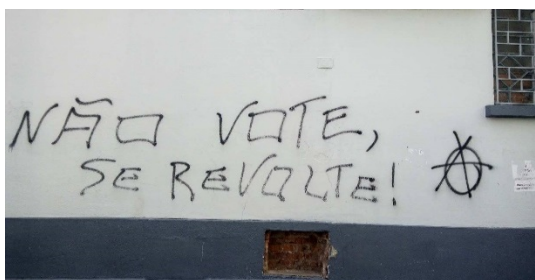 NÃO VOTE,
SE REVOLTE!